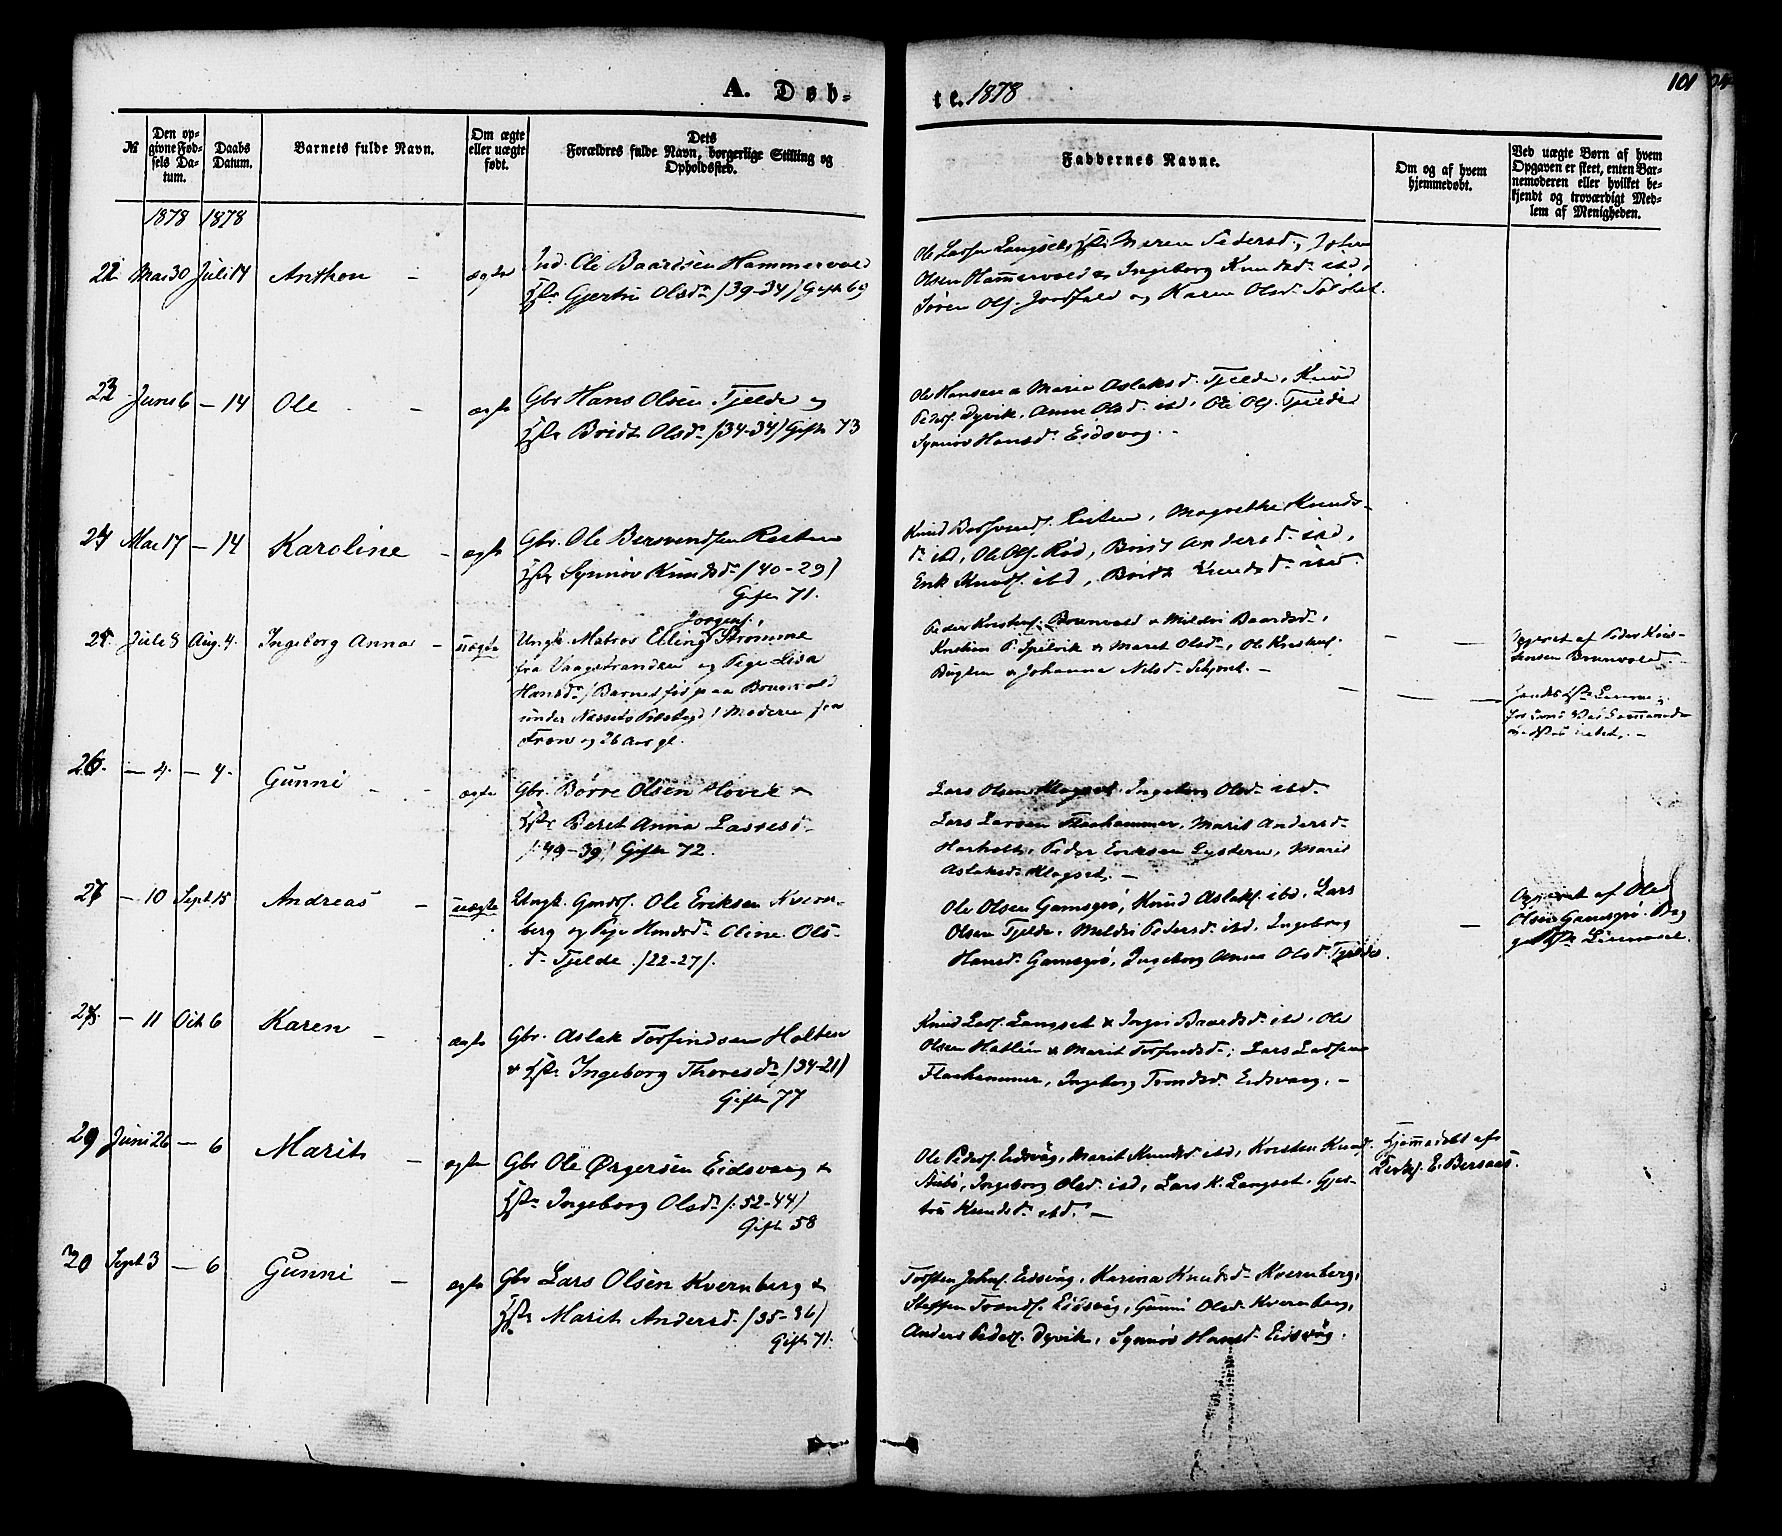 A. Døb-
te. 1878
101
№
Den op-
givne Fød-
sels Da-
tum.
Daabs
Datum.
Barnets fulde Navn.
Om ægte
eller uægte
født.
Dets
Forældres fulde Navn, borgerlige Stilling og
Opholdssted.
Faddernes Navne.
Om og af hvem
hjemmedøbt.
Ved uægte Børn af hvem
Opgaven er skeet, enten Bar-
nemoderen eller hvilket be-
kjendt og troværdigt Med-
lem af Menigheden.
1878 1878
22 Mai 30 Juli 14 Anthon - ægte
Ind. Ole Baardsen Hammervold
Hst. Gjertru Olsdr /39-34/ Gift 69
Ole Larsen Langset, Maren Pedersd.
Olsen Hammervold & Ingeborg Knudsd. ibd,
Søren Ols. og Karen Olsd.
23 Juni 6 - 14 Ole - ægte
Gbr Hans Olsen Tjelde og
Hst. Bridt Olsdr /34-34/ Gift 73
Ole Hansen & Maria Aslaksd. Tjelde, Knud
Peders. Dyvik, Anne Olsd. ibd, Ole Ols. Tjelde,
Synnøv Hansd. Eidsvag. -
24 Mai 17 - 14 Karoline - ægte
Gbr. Ole Bersvendsen
Hst. Synnøv Knudsdr /40-29/
Gift 71.
Knud Bersvends. Magrethe Knuds-
d. ibd, Ole Ols. Rød, Brit Andersd. ibd,
Erik Knuds. ibd, Bridt Knudsd. ibd.
25 Juli 8 Aug. 4. Ingeborg Anna - uægte
Jørgens.,
Ungk. Matros Elling Strømme
fra Vaagstranden og Pige Lisa
Hansdr / Barnet født paa Brunvold
under Nessets Præstegd / Moderen fra
og 26 Aar gl.
Peder Kristens. Brunvold & Mildri Baardsd.,
Kristian P. & Marit Olsd., Ole
Bugten & Johanna Nilsd. -
Opgivet af Peder Kris-
tensen Brunvold.
26. - 4. - 4. Gunni - - ægte
Gbr. Børre Olsen Hovik &
Hst. Beret Anna Larsesd.
/:49-39/ Gift 72.
Lars Olsen Klagset, Ingeborg Olsd. ibd.
Lars Larsen Flaahammer, Marit Andersd.
Harholt, Peder Eriksen Marit
Aslaksd. Klagset. -
27 - 10 Sept 15 Andreas - uægte
Ungk. Ole Eriksen Kvern-
berg og Pige Oline Ols-
d. Tjelde /22-27/.
Ole Olsen Gamsgrø, Knud Aslaks. ibd, Lars
Olsen Tjelde, Mildri Pedersd. ibd, Ingeborg
Hansd. Gamsgrø, Ingeborg Anna Olsd. Tjelde.
Opgivet af Ole
Olsen Gamsgrø.
28. - 11 Oct 6 Karen - ægte
Gbr. Aslak Torfindsen Holten
& Hst. Ingeborg Thoresdr /34-21/
Gift 77
Knud Lars. Langset & Ingri Baardsd. ibd, Ole
Olsen & Marit Torfindsd., Lars Larsen
Flaahammer, Ingeborg Trondsd. Eidsvaag. -
29 Juni 26 - 6 Marit - ægte
Gbr Ole Ørgersen Eidsvaag &
Hst. Ingeborg Olsdr /:52-44/
Gift 58
Ole Peders. Eidsvåg, Marit Knudsd. ibd, Korsten Knuds.
Ingeborg Olsd. ibd, Lars K. Langset, Gjer-
tru Knudsd. ibd. -
Hjemmedøbt af
E. Bersaas.
30 Sept 3 - 6 Gunni - ægte
Gbr Lars Olsen Kvernberg &
Hst. Marit Andersd. /35-36/
Gift 71.
Torsten Johns. Eidsvåg, Karina Knudsd. Kvernberg,
Steffen Tronds. Eidsvåg, Gunni Olsd. Kvernberg,
Anders Peders. Dyvik, Synnøv Hansd. Eidsvåg.